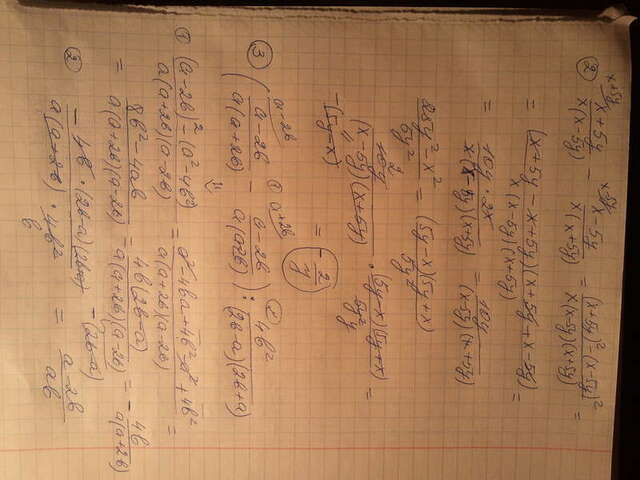 ② x+5y/ x+5y/x(x-5y) - x-5y/ x-5y/x(x+5y) = (x+5y)²-(x-5y)²/x(x-5y)(x+5y) =
= (x+5y-x+5y)(x+5y+x-5y)/x(x-5y)(x+5y) =
= 10y·2x/x(x-5y)(x+5y) = 10y/(x-5y)(x+5y)
25y²-x²/5y² = (5y-x)(5y+x)/5y²
(x-5y)(x+5y) · (5y-x)(5y+x)/5y² =
-(5y-x)
= -
③ ( a-2b/ a-2b/a(a+2b) - ① a+2b/ a-2b/a(a-2b) ) : ② 4b²/(2b-a)(2b+a)
① (a-2b)²-(a²-4b²)/a(a+2b)(a-2b) = a²-4ba+4b²-a²+4b²/a(a+2b)(a-2b) =
= 8b²-4ab/a(a+2b)(a-2b) = 4b(2b-a)/a(a+2b)(a-2b) = - 4b/a(a+2b)
② = a-2b/ab